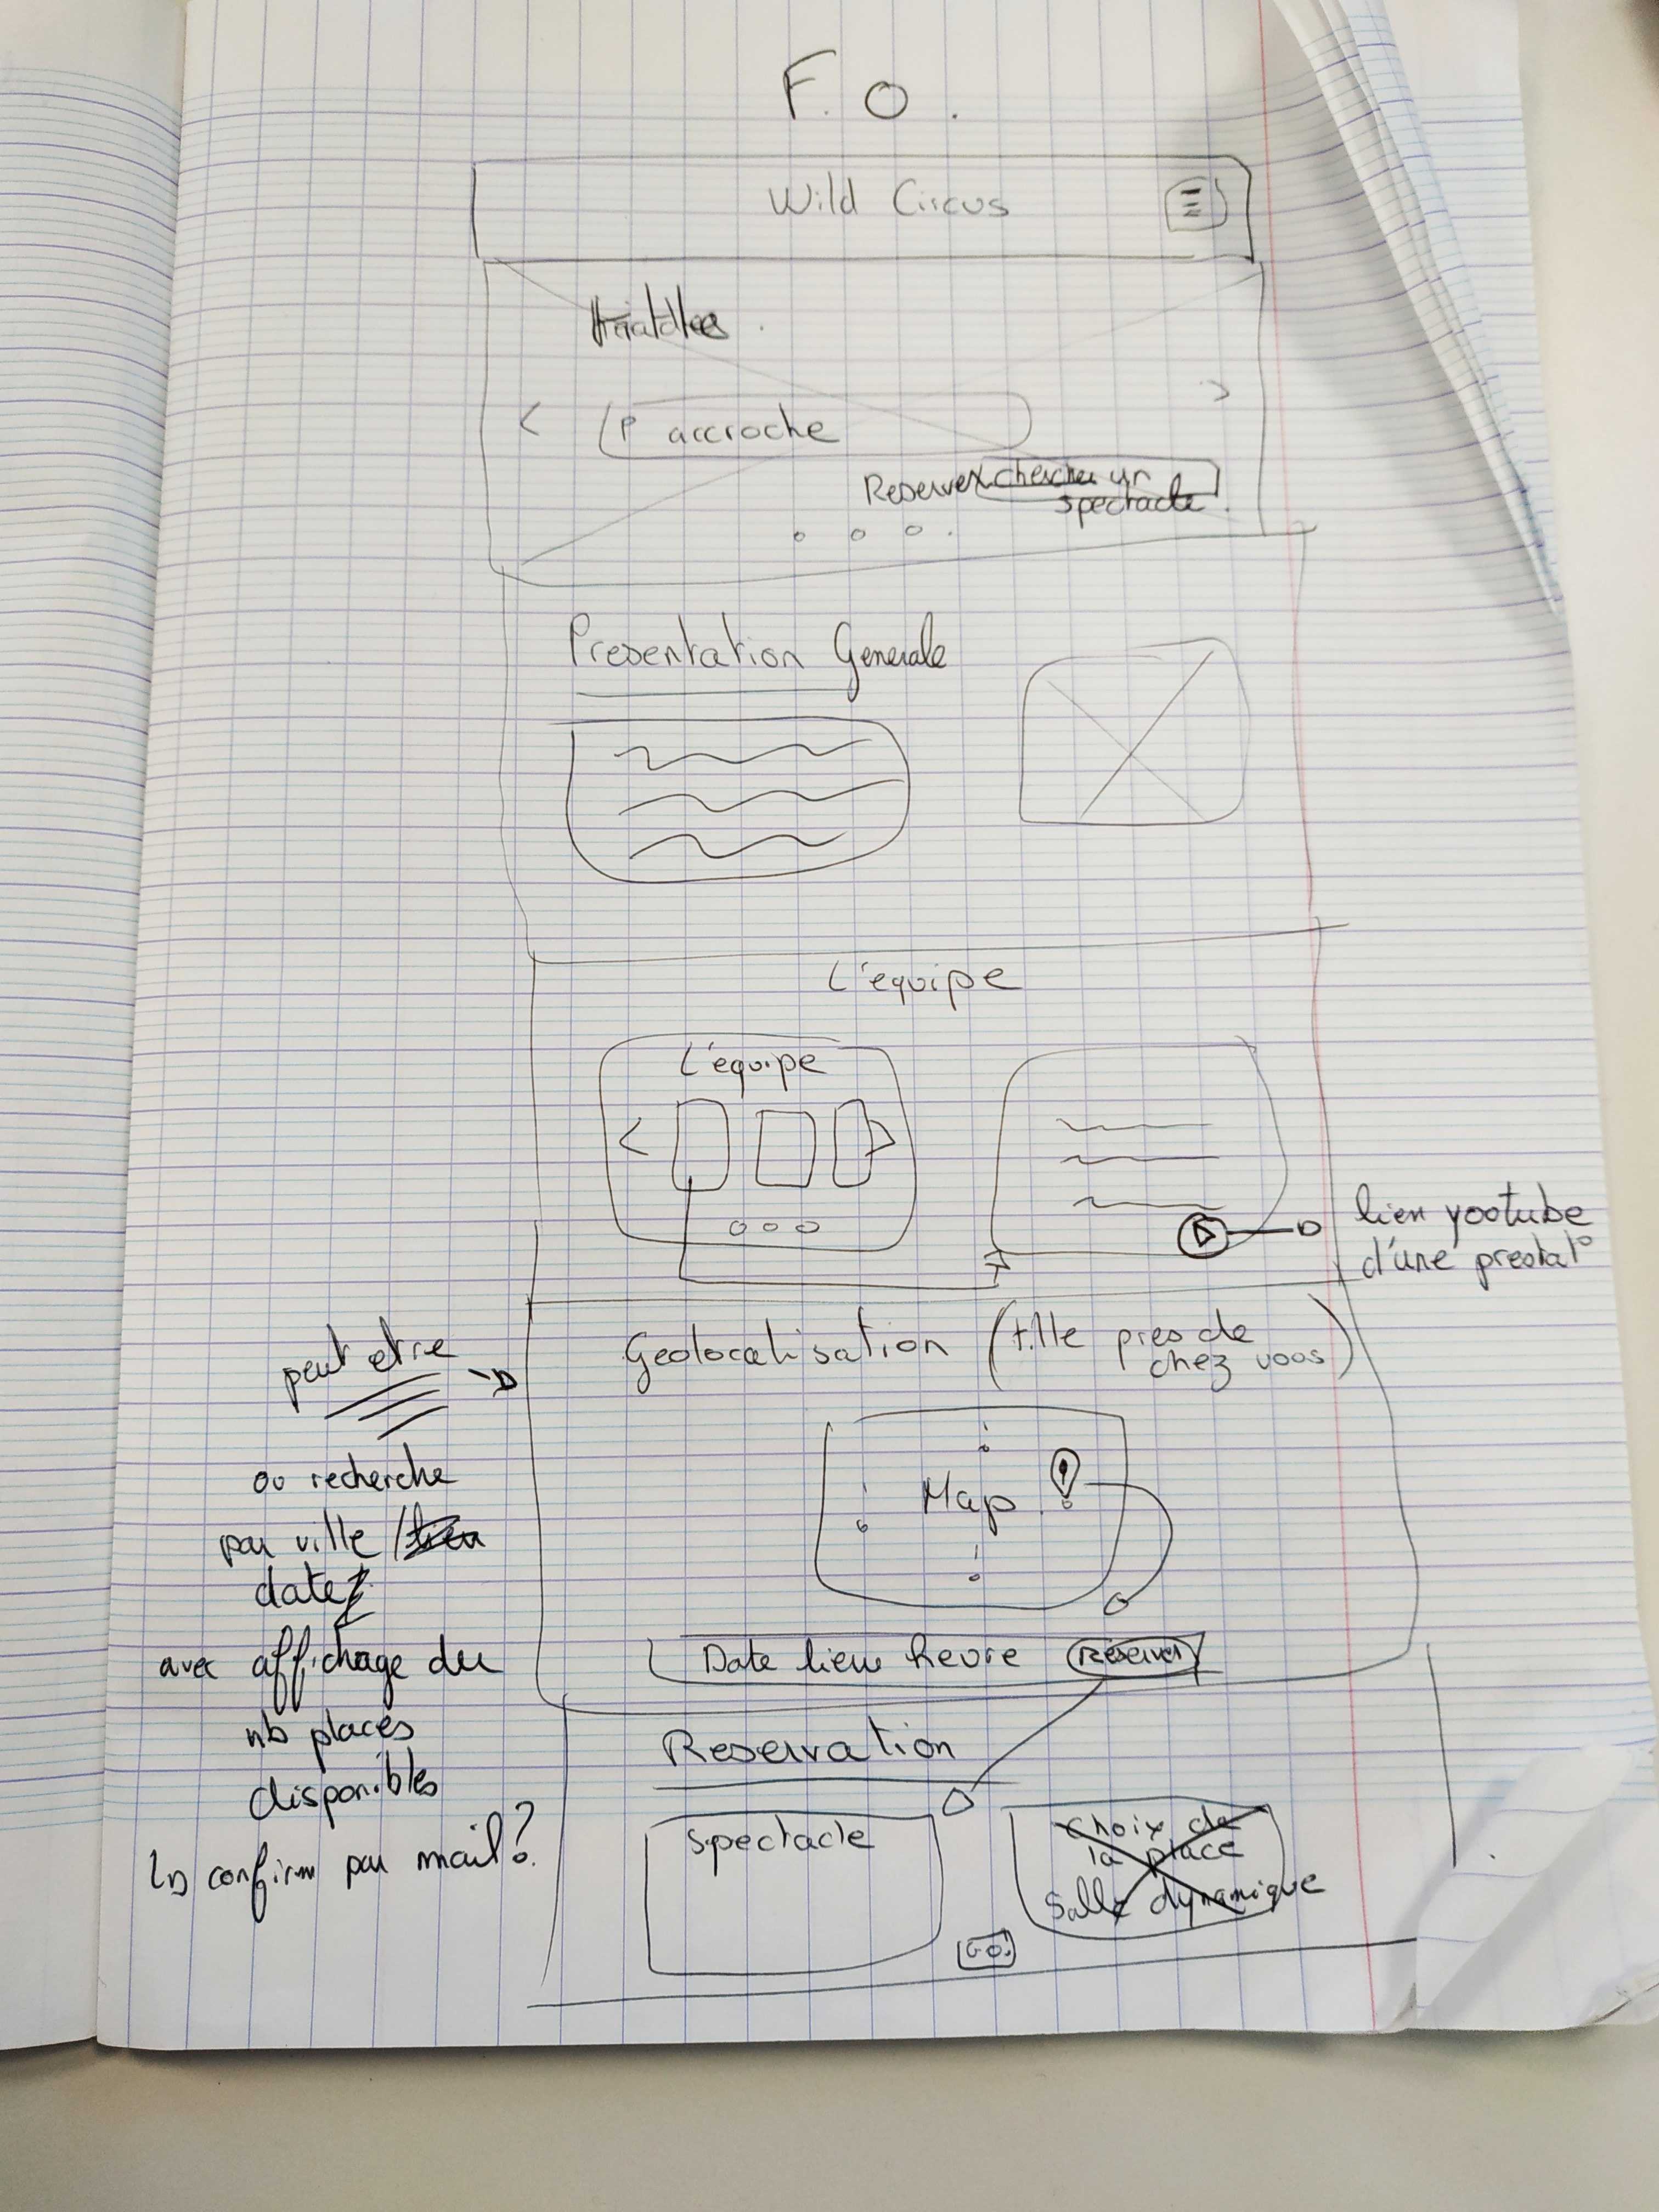 F.O.
Wild Circus
P accroche
Reserver chercher un
spectacle.
Presentation Generale
L'equipe
L'equipe
lien yootube
d'une prestat°
Geolocalisation (title pres de
chez vous)
peut etre
ou recherche
par ville /
date
avec affichage du
nb places
disponibles
↳ confirm par mail?
Map
Date lieu heure Réserver
Reservation
Spectacle
choix de
la place
Salle dynamique
GO!